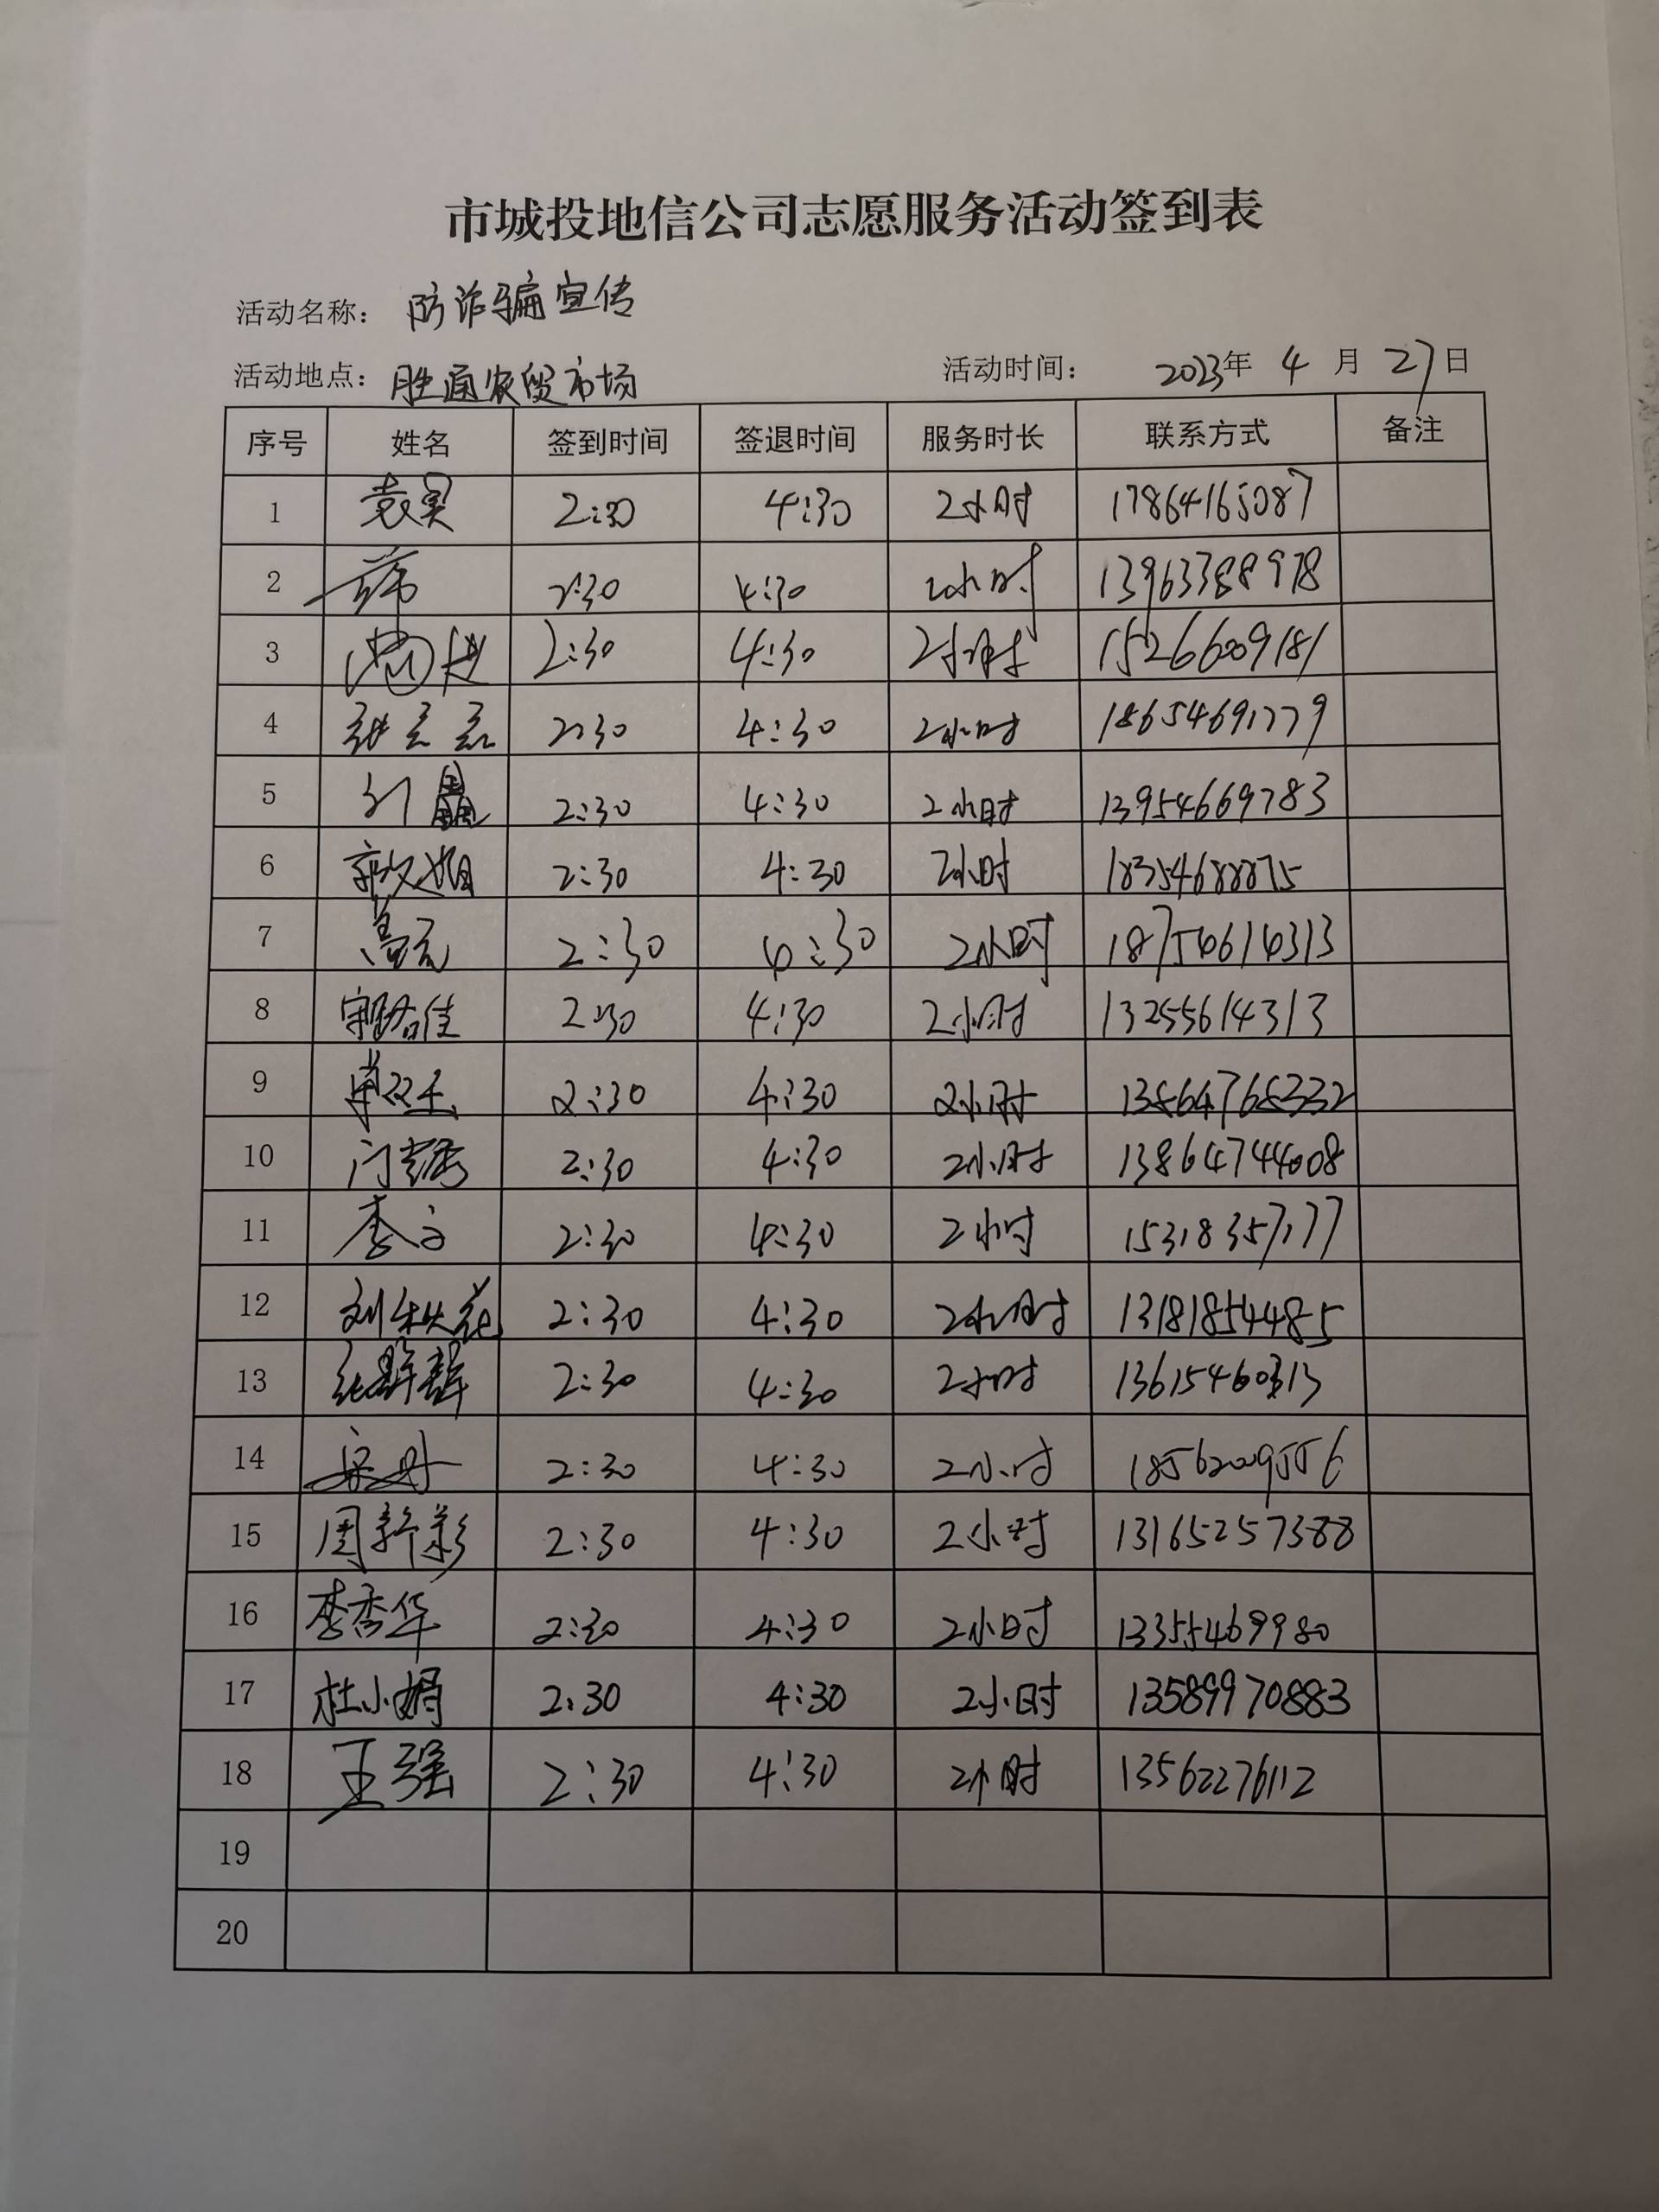 市城投地信公司志愿服务活动签到表
活动名称: 防诈骗宣传
活动地点: 胜通农贸市场 活动时间: 2023年 4 月 27日
序号 姓名 签到时间 签退时间 服务时长 联系方式 备注
1 袁昊 2:30 4:30 2小时 17864165087
2 2:30 4:30 2小时 13963388978
3 2:30 4:30 2小时 15266009181
4 2:30 4:30 2小时 18654691779
5 刘赢 2:30 4:30 2小时 13954669783
6 2:30 4:30 2小时 18354688875
7 2:30 4:30 2小时 18754614313
8 2:30 4:30 2小时 13255614313
9 2:30 4:30 2小时 13864768332
10 2:30 4:30 2小时 13864744008
11 2:30 4:30 2小时 15318357177
12 刘秋花 2:30 4:30 2小时 13181854485
13 2:30 4:30 2小时 13615460313
14 2:30 4:30 2小时 18562009556
15 周新彩 2:30 4:30 2小时 13165257388
16 李秀华 2:30 4:30 2小时 13355469980
17 杜小娟 2:30 4:30 2小时 13589970883
18 王强 2:30 4:30 2小时 13562276112
19
20